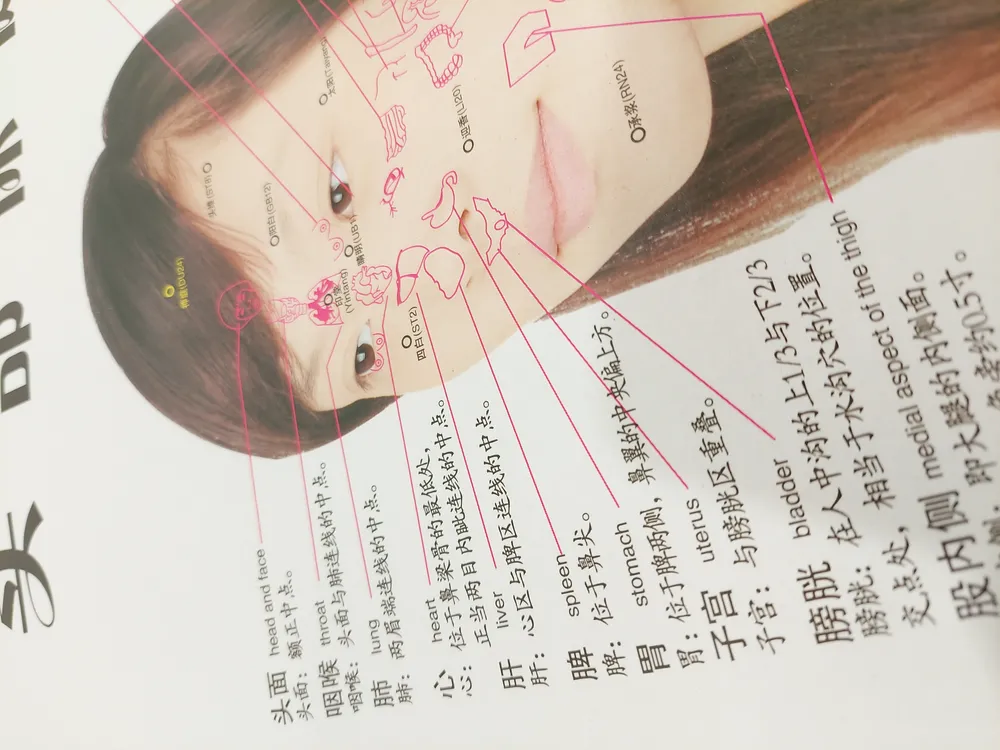 头
神庭(DU24)
头维(ST8)
阳白(GB12)
太阳(Taiyang)
印堂
(Yintang)
睛明(UB1)
四白(ST2)
迎香(LI20)
承浆(RN24)
头面 head and face
头面：额正中点。
咽喉 throat
咽喉：头面与肺连线的中点。
肺 lung
肺：两眉端连线的中点。
心 heart
心：位于鼻梁骨的最低处，
正当两目内眦连线的中点。
肝 liver
肝：心区与脾区连线的中点。
脾 spleen
脾：位于鼻尖。
胃 stomach
胃：位于脾两侧，鼻翼的中央偏上方。
子宫 uterus
子宫：与膀胱区重叠。
膀胱 bladder
膀胱：在人中沟的上1/3与下2/3
交点处，相当于水沟穴的位置。
股内侧 medial aspect of the thigh
即大腿的内侧面。